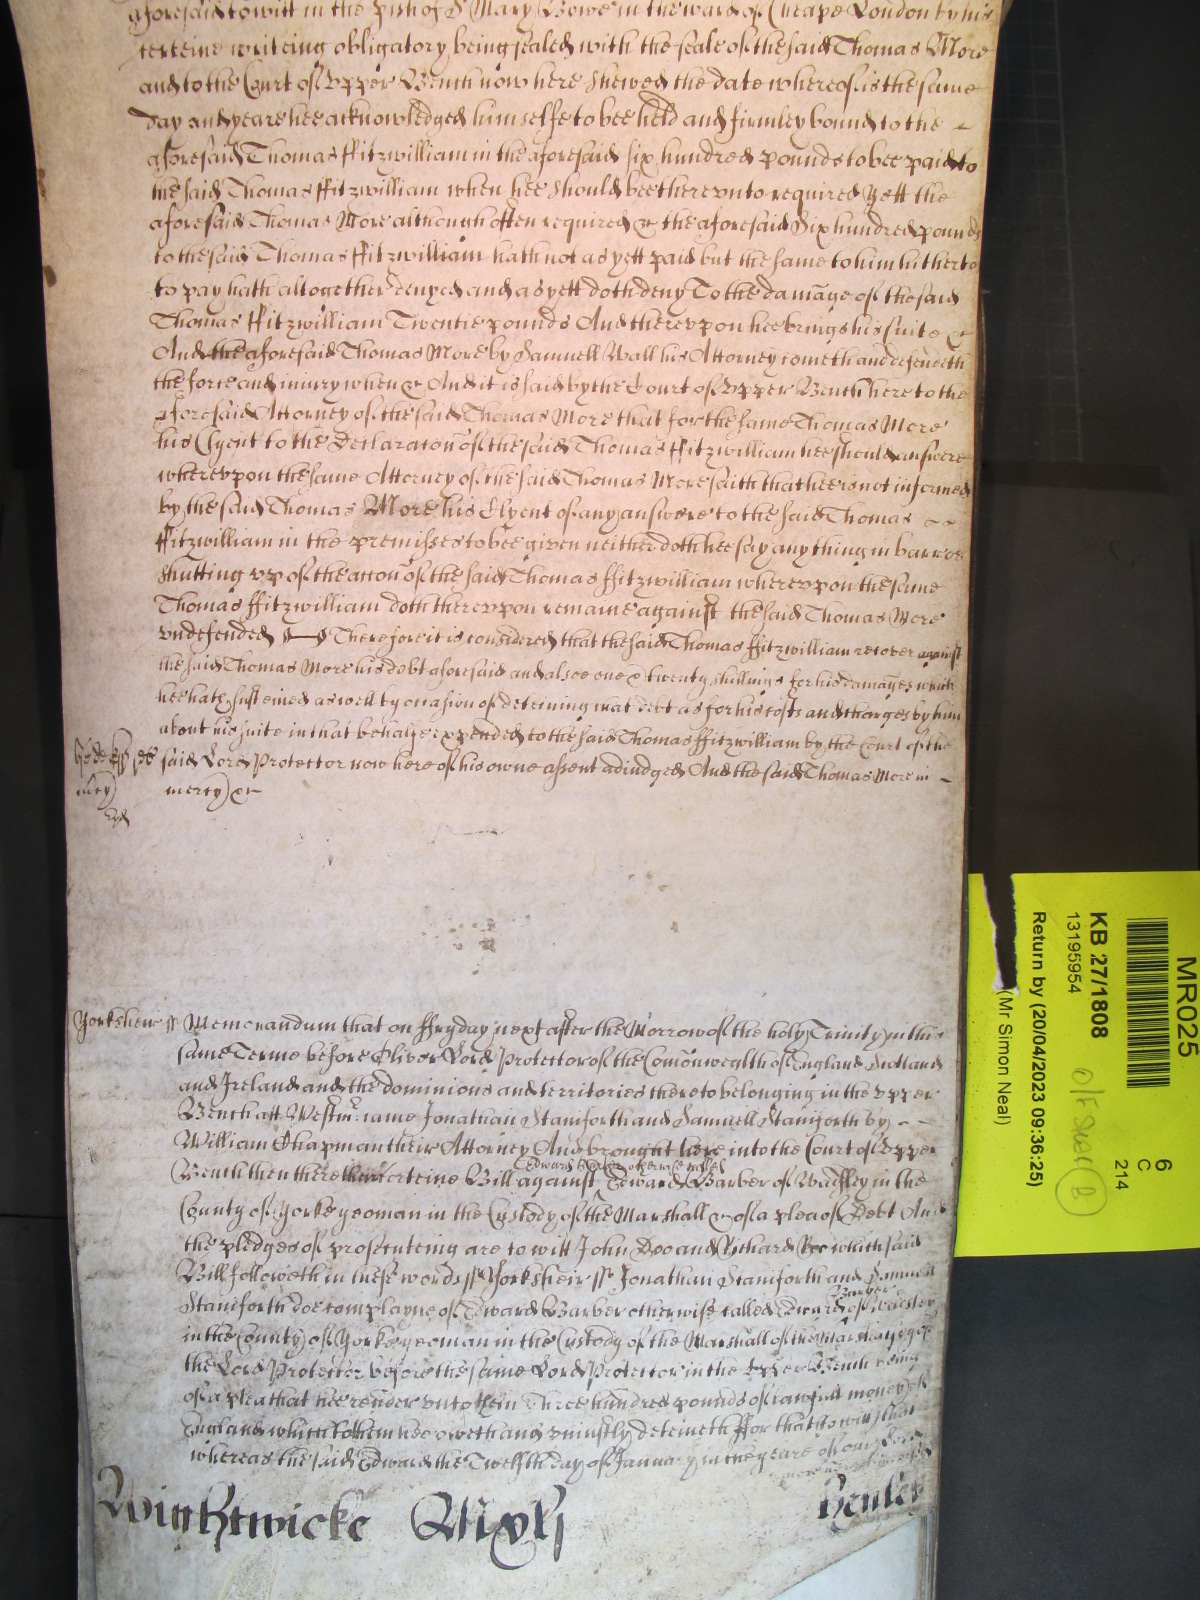 aforesaid to witt in the pish of St Mary Bowe in the ward of Cheape London by his
certeine writeing obligatory being sealed with the seale of the said Thomas More
and to the Court of Vpper Bench now here shewed the date whereof is the same
day and yeare hee acknowledged himselfe to bee held and firmley bound to the
aforesaid Thomas ffitzwilliam in the aforesaid six hundred pounds to bee paid to
the said Thomas ffitzwilliam when hee should bee therevnto required Yett the
aforesaid Thomas More although often required &c the aforesaid Six hundred pounds
to the said Thomas ffitzwilliam hath not as yett paid but the same to him hitherto
to pay hath altogether denyed and as yett doth deny To the damage of the said
Thomas ffitzwilliam Twentie pounds And therevpon hee brings his suite &c
And the aforesaid Thomas More by Samuell Wall his Attorney cometh and defendeth
the force and iniury when &c And it is said by the Court of Vpper Bench here to the
aforesaid Attorney of the said Thomas More that for the same Thomas More
his Clyent to the Declaracon of the said Thomas ffitzwilliam hee should answere
wherevpon the same Attorney of the said Thomas More saith that hee is not informed
by the said Thomas More his Clyent of any answere to the said Thomas
ffitzwilliam in the premisses to bee given neither doth hee say any thing in barr or
shutting vp of the accon of the said Thomas ffitzwilliam wherevpon the same
Thomas ffitzwilliam doth therevpon remaine against the said Thomas More
vndefended Therefore it is considered that the said Thomas ffitzwilliam recover against
the said Thomas More his debt aforesaid and alsoe one & twenty shillings for his damages which
hee hath susteined as well by occasion of deteining that debt as for his costs and charges by him
about his suite in that behalfe expended to the said Thomas ffitzwilliam by the Court of the
said Lord Protector now here of his owne assent adiudged And the said Thomas More in
mercy &c
Yorksheir ss Memorandum that on ffryday next after the Morrow of the holy Trinity in this
same Terme before Oliver Lord Protector of the Comonwealth of England Scotland
and Ireland and the dominions and territories thereto belonging in the vpper
Bench att Westmr came Jonathan Staniforth and Samuell Staniforth by
William Chapman their Attorney And brought here into the Court of Vpper
Bench then there their certeine Bill against Edward Barber otherwise called Edward Barber of Wadsley in the
County of Yorke yeoman in the Custody of the Marshall &c of a plea of Debt And
the pledges of prosecuteing are to witt John Doo and Richard Roo which said
Bill followeth in these words ss Yorksheir ss Jonathan Staniforth and Samuell
Staniforth doe complayne of Edward Barber otherwise called Edward Barber of Wadsley
in the County of Yorke yeoman in the Custody of the Marshall of the Marshalsey of
the Lord Protector before the same Lord Protector in the vpper Bench being
of a plea that hee render vnto them Three hundred pounds of lawfull money of
England which to them hee oweth and vniustly deteineth ffor that to witt that
whereas the said Edward the Twelfth day of January in the yeare of our Lord
Wightwicke Mixt
Henley
MR025
6
C
214
KB 27/1808
13195954
O/F Sheet (B)
Return by (20/04/2023 09:36:25)
(Mr Simon Neal)